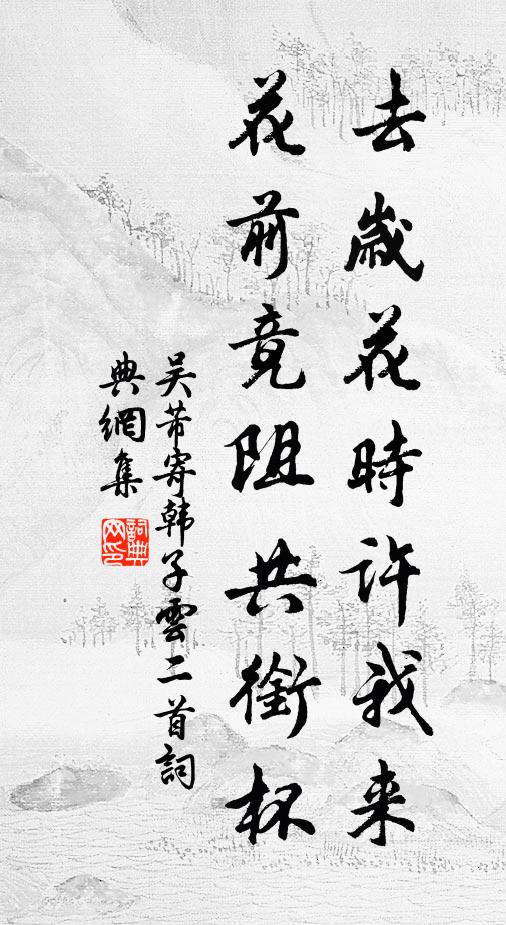 去歲花時許我来
花前竟阻共銜杯
吴芾寄韩子雲二首詞
典網集
詞典网印